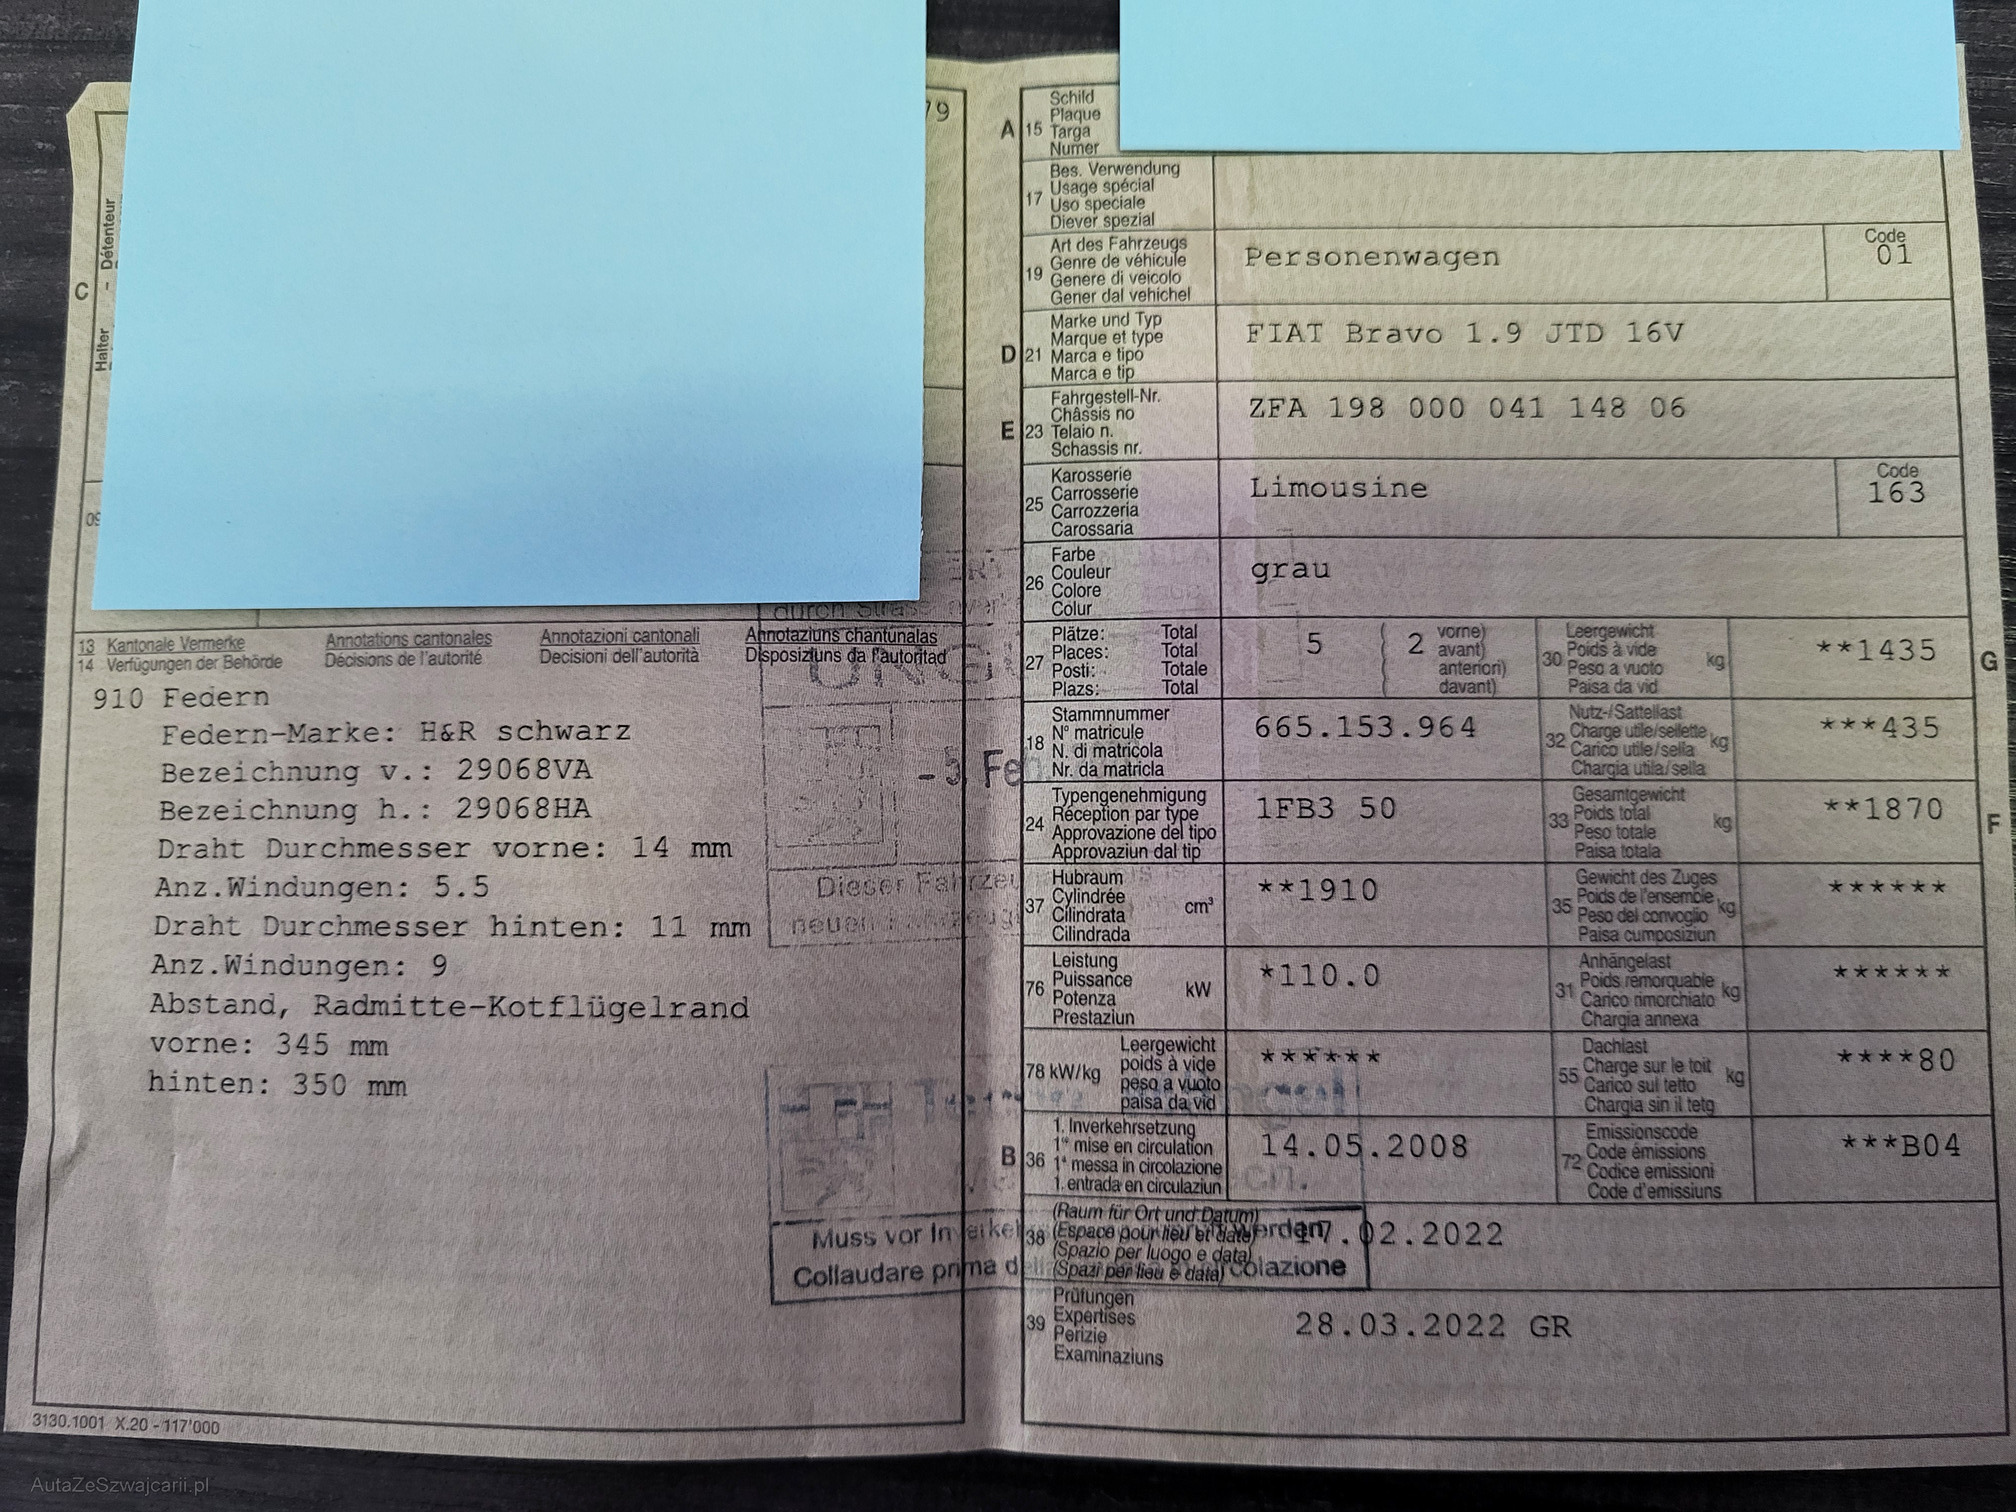 79
C
Halter - Détenteur
09
durch Strasse
13 Kantonale Vermerke Annotations cantonales Annotazioni cantonali Annotaziuns chantunalas
14 Verfügungen der Behörde Décisions de l'autorité Decisioni dell'autorità Disposiziuns da l'autoritad
910 Federn
Federn-Marke: H&R schwarz
Bezeichnung v.: 29068VA
Bezeichnung h.: 29068HA
Draht Durchmesser vorne: 14 mm
Anz.Windungen: 5.5
Draht Durchmesser hinten: 11 mm
Anz.Windungen: 9
Abstand, Radmitte-Kotflügelrand
vorne: 345 mm
hinten: 350 mm
Dieser
Muss vor werden
Collaudare prima circolazione
3130.1001 X.20 - 117'000
A 15 Schild
Plaque
Targa
Numer
17 Bes. Verwendung
Usage spécial
Uso speciale
Diever spezial
19 Art des Fahrzeugs
Genre de véhicule
Genere di veicolo
Gener dal vehichel
Personenwagen
Code
01
D 21 Marke und Typ
Marque et type
Marca e tipo
Marca e tip
FIAT Bravo 1.9 JTD 16V
E 23 Fahrgestell-Nr.
Châssis no
Telaio n.
Schassis nr.
ZFA 198 000 041 148 06
25 Karosserie
Carrosserie
Carrozzeria
Carossaria
Limousine
Code
163
26 Farbe
Couleur
Colore
Colur
grau
27 Plätze: Total
Places: Total
Posti: Totale
Plazs: Total
5 ( 2 vorne)
avant)
anteriori)
davant)
30 Leergewicht
Poids à vide
Peso a vuoto
Paisa da vid
kg
**1435
G
18 Stammnummer
N° matricule
N. di matricola
Nr. da matricla
665.153.964
32 Nutz-/Sattellast
Charge utile/sellette
Carico utile/sella
Chargia utila/sella
kg
***435
24 Typengenehmigung
Réception par type
Approvazione del tipo
Approvaziun dal tip
1FB3 50
33 Gesamtgewicht
Poids total
Peso totale
Paisa totala
kg
**1870
F
37 Hubraum
Cylindrée
Cilindrata
Cilindrada
cm³
**1910
35 Gewicht des Zuges
Poids de l'ensemble
Peso del convoglio
Paisa cumposiziun
kg
******
76 Leistung
Puissance
Potenza
Prestaziun
kW
*110.0
31 Anhängelast
Poids remorquable
Carico rimorchiato
Chargia annexa
kg
******
78 kW/kg Leergewicht
poids à vide
peso a vuoto
paisa da vid
******
55 Dachlast
Charge sur le toit
Carico sul tetto
Chargia sin il tetg
kg
****80
B 36 1. Inverkehrsetzung
1re mise en circulation
1a messa in circolazione
1. entrada en circulaziun
14.05.2008
72 Emissionscode
Code émissions
Codice emissioni
Code d'emissiuns
***B04
38 (Raum für Ort und Datum)
(Espace pour lieu et date)
(Spazio per luogo e data)
(Spazi per lieu e data)
17.02.2022
39 Prüfungen
Expertises
Perizie
Examinaziuns
28.03.2022 GR
AutaZeSzwajcarii.pl